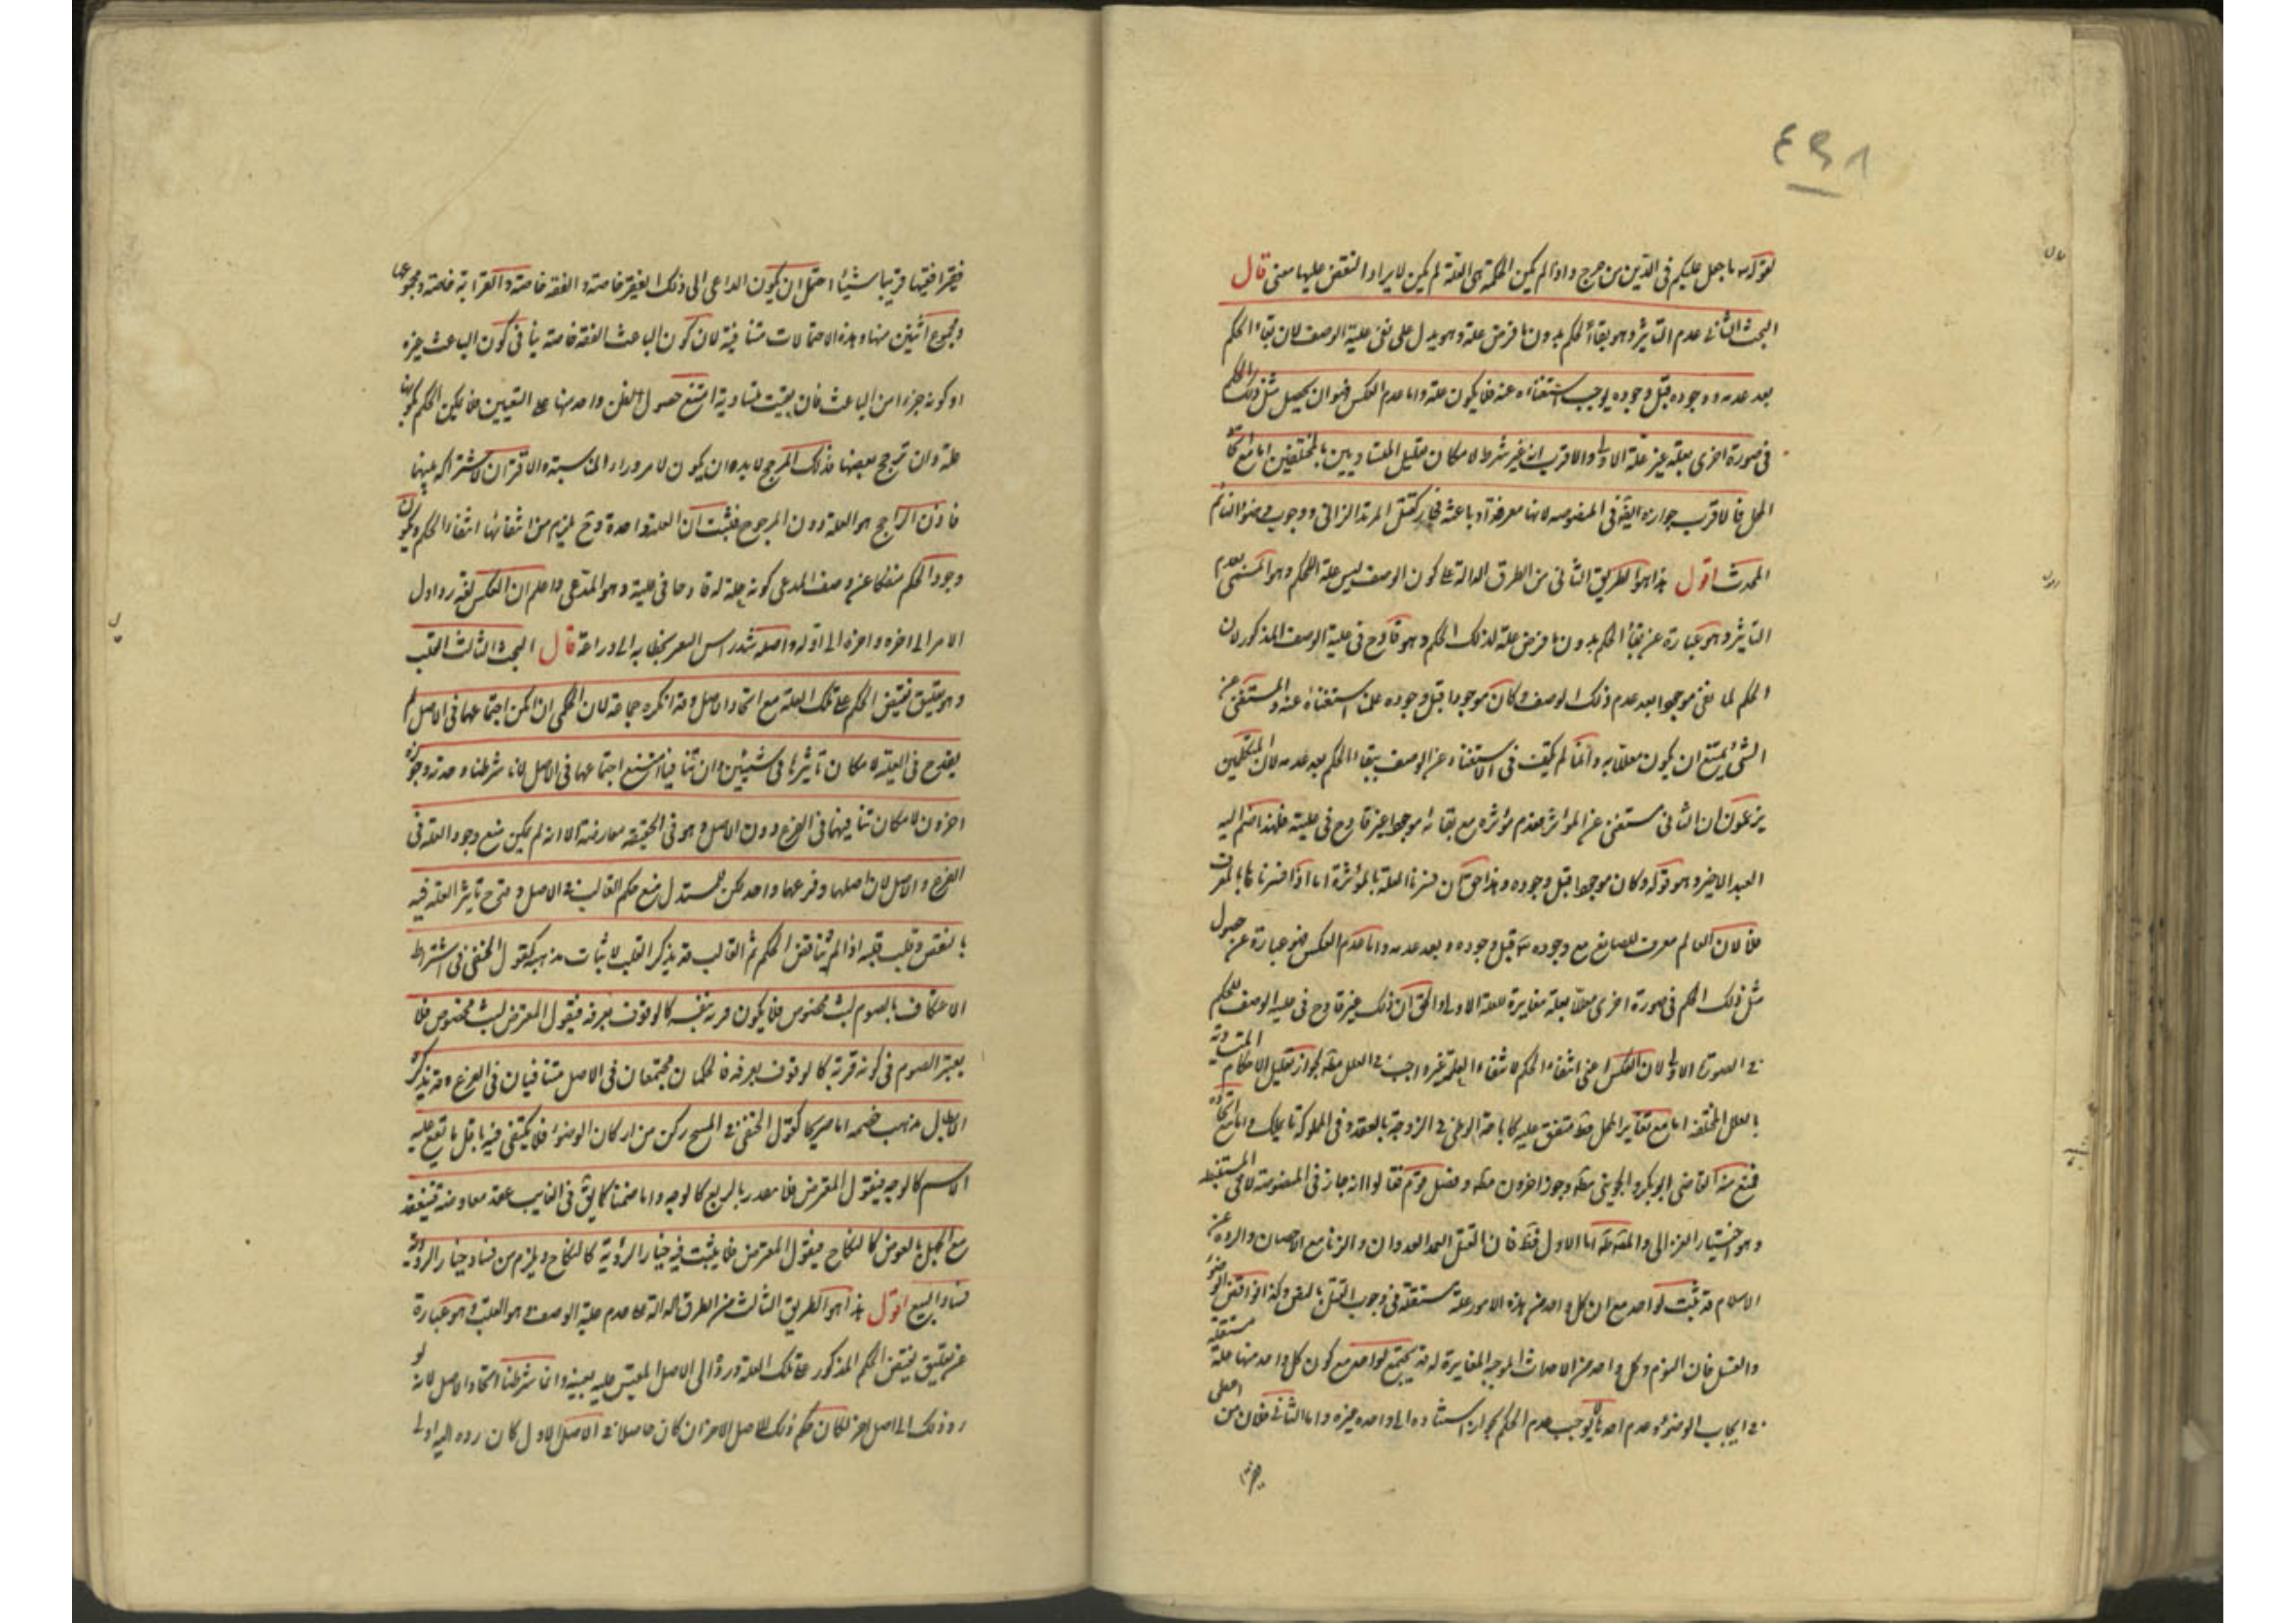 ٤٩٨
لقوله ما جعل عليكم في الدين من حرج واذا لم يكن الحكمة هي العلة لم يكن لايراد النقض عليها معنى قال
البحث الثاني عدم التأثير وهو بقاء الحكم بدون ما فرض علة وهو يدل على نفي علية الوصف لان بقاء الحكم
بعد عدمه ووجوده قبل وجوده يوجب استغناءه عنه فلا يكون علة واما عدم العكس فهو ان يحصل مثل ذلك الحكم
في صورة اخرى بعلة غير علة الاولى والاقرب انه غير شرط لامكان تعليل المتساويين بالمختلفين اما مع اتحاد
المحل فالاقرب جوازه ايضا في المنصوصه لانها معرفة او باعثة فجاز كقتل المرتد الزاني ووجوب وضوء النائم
المحدث اقول هذا هو الطريق الثاني من الطرق الدالة على كون الوصف ليس علة للحكم وهو المسمى بعدم
التأثير وهو عبارة عن بقاء الحكم بدون ما فرض علة لذلك الحكم وهو قادح في علية الوصف المذكور لان
الحكم لما بقى موجودا بعد عدم ذلك الوصف وكان موجودا قبل وجوده علمنا استغناءه عنه والمستغنى عن
الشئ يمتنع ان يكون معللا به وانما لم يكتف في الاستغناء عن الوصف ببقاء الحكم بعد عدمه لان المتكلمين
يزعمون ان الثاني مستغن عن المؤثر فعدم مؤثره مع بقائه موجودا غير قادح في علية فلهذا انضم اليه
القيد الاخير وهو قوله وكان موجودا قبل وجوده وهذا حق ان فسرنا العلة بالمؤثرة اما اذا فسرناها بالمعرف
فلا لان العالم معرف للصانع مع وجوده تعالى قبل وجوده وبعد عدمه واما عدم العكس فهو عبارة عن حصول
مثل ذلك الحكم في صورة اخرى معللا بعلة مغايرة للعلة الاولى والحق ان ذلك غير قادح في علية الوصف للحكم
في الصورة الاولى لان العكس اعني انتفاء الحكم لانتفاء العلة غير واجب في العلل مطلقا لجواز تعليل الاحكام المتساوية
بالعلل المختلفة اما مع تغاير المحل فظ متفق عليه كاباحة الوطي في الزوجة بالعقد وفي المملوكة بالملك واما مع اتحاده
فمنع منه القاضي ابو بكر والجويني مطلقا وجوزه اخرون مطلقا وفصل قوم فقالوا انه جاز في المنصوصة لا في المستنبطة
وهو اختيار الغزالي والمصنف اما الاول فظ فان القتل العمد العدوان والزنا مع الاحصان والردة عن
الاسلام قد ثبت لواحد مع ان كل واحد من هذه الامور علة مستقلة في وجوب القتل بالنص وكذا نواقض الوضوء
والغسل فان النوم وكل واحد من الاحداث الموجبة المغايرة له قد يجتمع لواحد مع كون كل واحد منها علة مستقلة
في ايجاب الوضوء وعدم احدها لا يوجب عدم الحكم لجواز استناده الى واحد غيره واما الثاني فلان من اعطى
فقيرا فقيها قريبا شيئا احتمل ان يكون الداعي الى ذلك الفقر خاصة والفقه خاصة والقرابة خاصة ومجموعها
ومجموع اثنين منها وهذه الاحتمالات متنافية لان كون الباعث الفقه خاصة ينافي كون الباعث غيره
او كونه جزءا من الباعث فان بقيت متساوية امتنع حصول الظن واحد منها على التعيين فلا يمكن الحكم بكونها
علة وان ترجح بعضها فذلك المرجح لابد وان يكون لامر وراء المناسبة والاقتران لاشتراكه بينها
فاذن الراجح هو العلة دون المرجوح فثبت ان العلة واحدة وح يلزم من انتفائها انتفاء الحكم ويكون
وجود الحكم منفكا عن وصف المدعى كونه علة له قادحا في علية وهو المدعى واعلم ان العكس لغة رد اول
الامر الى اخره واخره الى اوله واصله شد راس البعير بخطامه الى ذراعه قال البحث الثالث القلب
وهو تعليق نقيض الحكم على تلك العلة مع اتحاد الاصل وقد انكره جماعة لان الحكمين ان امكن اجتماعهما في الاصل لم
يقدح في العلة لامكان تأثيرها في شيئين وان تنافيا امتنع اجتماعهما في الاصل لانا شرطنا وحدته وجوزه
اخرون لامكان تنافيهما في الفرع دون الاصل وهو في الحقيقة معارضة الا انه لم يمكن منع وجود العلة في
الفرع والاصل لان اصلها وفرعها واحد لكن للمستدل منع حكم القالب في الاصل وقدح تأثير العلة فيه
بالنقض وقلب قلبه اذا لم يناقض الحكم ثم القالب قد يذكر القلب لاثبات مذهبه كقول الحنفي في اشتراط
الاعتكاف بالصوم لبث مخصوص فلا يكون قربة بنفسه كالوقوف بعرفة فيقول المعترض لبث مخصوص فلا
يعتبر الصوم في كونه قربة كالوقوف بعرفة فالحكمان مجتمعان في الاصل متنافيان في الفرع وقد يذكره
لابطال مذهب خصمه اما صريحا كقول الحنفي في المسح ركن من اركان الوضوء فلا يكتفى فيه باقل ما يقع عليه
الاسم كالوجه فيقول المعترض فلا يقدر بالربع كالوجه واما ضمنا كما يقول في الغايب عقد معاوضة فينعقد
مع الجهل بالعوض كالنكاح فيقول المعترض فلا يثبت فيه خيار الرؤية كالنكاح ويلزم من فساد خيار الرؤية
فساد البيع اقول هذا هو الطريق الثالث من الطرق الدالة على عدم علية الوصف وهو القلب وهو عبارة
عن تعليق نقيض الحكم المذكور على تلك العلة وردا الى الاصل المقيس عليه بعينه وانما شرطنا اتحاد الاصل لانه لو
رد ذلك الى اصل اخر لكان حكم ذلك الاصل الاخر ان كان حاصلا في الاصل الاول كان رده اليه اولى